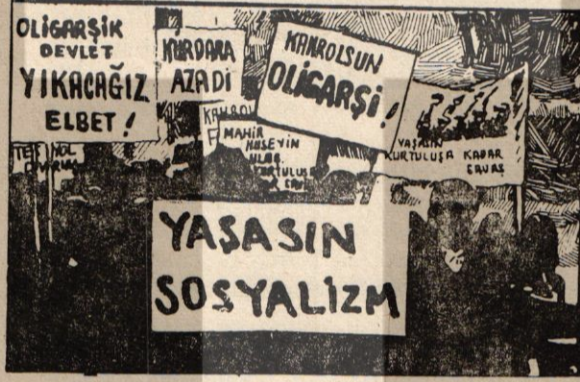 OLİGARŞİK
DEVLET
YIKACAĞIZ
ELBET!
KÜRDARA
AZADİ
KAHROLSUN
OLİGARŞİ!
KAHROL
MAHİR
HÜSEYİN
ULAŞ
KURTULUŞA
YAŞASIN
KURTULUŞA KADAR
SAVAŞ
TEK YOL
YAŞASIN
SOSYALİZM